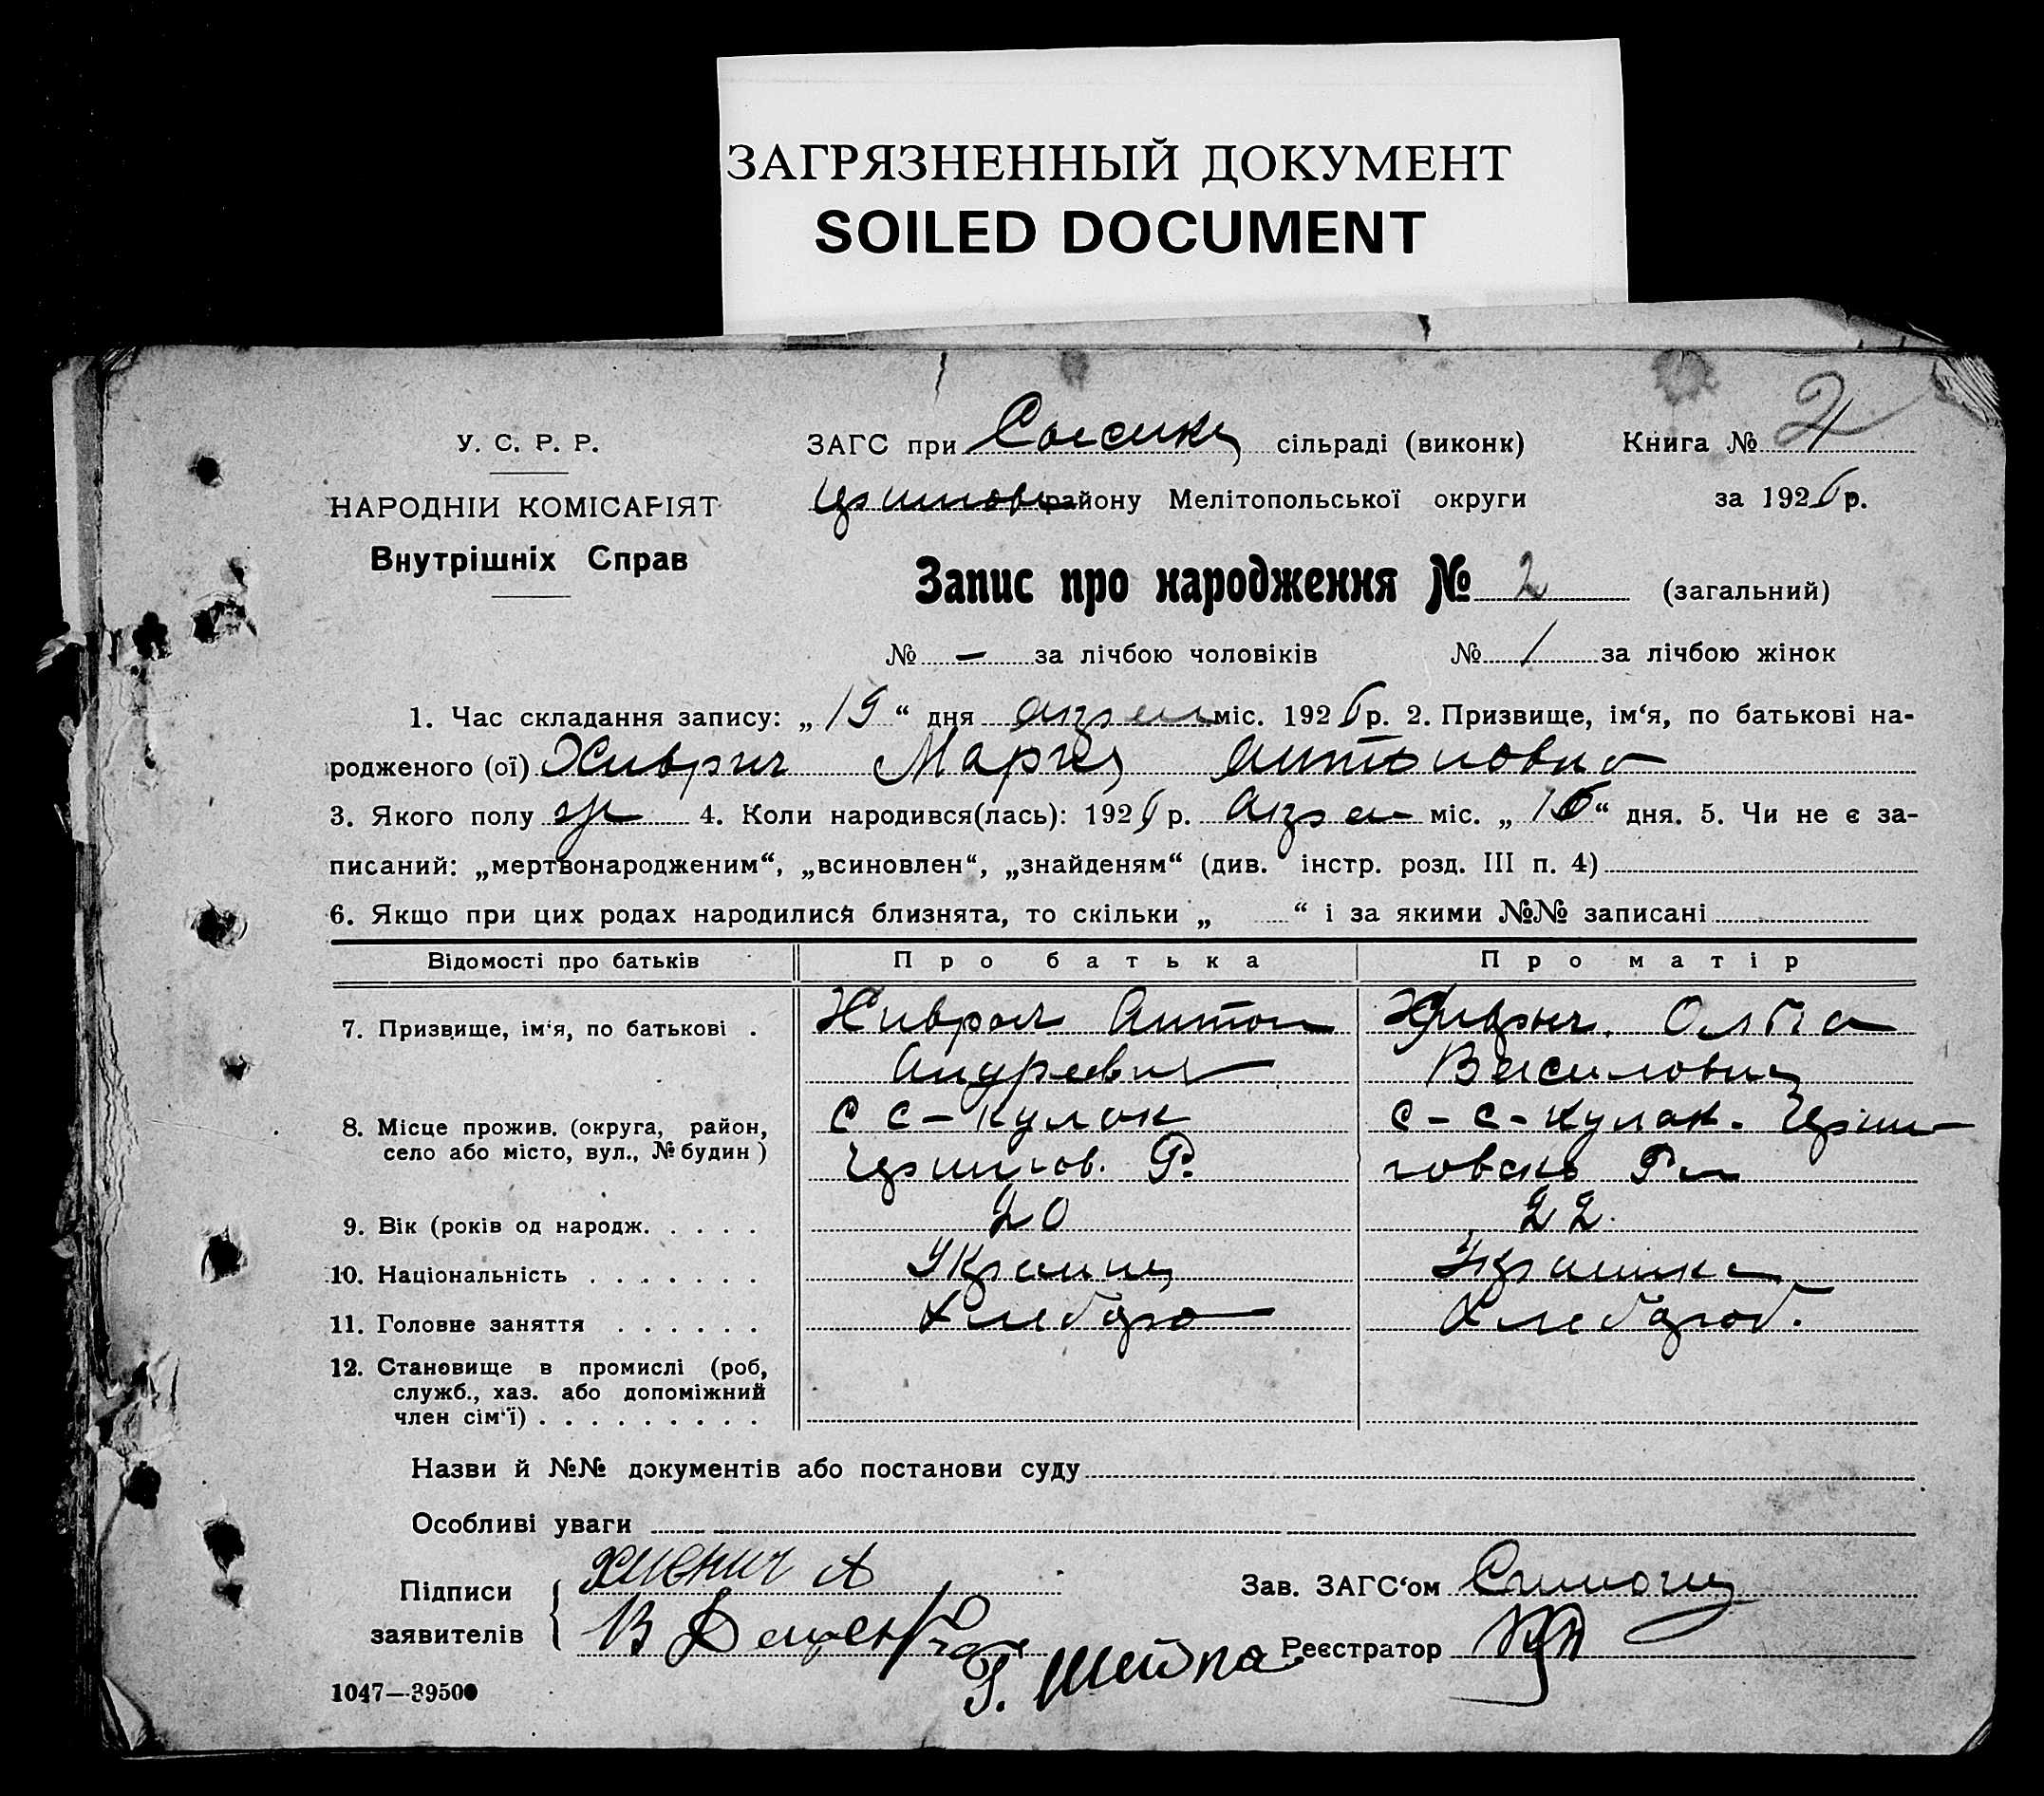 ЗАГРЯЗНЕННЫЙ ДОКУМЕНТ
SOILED DOCUMENT
У. С. Р. Р.
ЗАГС при сільраді (виконк)
Книга №
НАРОДНІЙ КОМІСАРІЯТ
району Мелітопольської округи
за 1926 р.
Внутрішніх Справ
Запис про народження № 2 (загальний)
№ — за лічбою чоловіків № 1 за лічбою жінок
1. Час складання запису: „19“ дня апрел міс. 1926 р. 2. Призвище, ім‘я, по батькові на-
родженого (ої) Хиврич Мария Антоновна
3. Якого полу ж 4. Коли народився(лась): 1926 р. апрел міс. „16“ дня. 5. Чи не є за-
писаний: „мертвонародженим“, „всиновлен“, „знайденям“ (див. інстр. розд. III п. 4)
6. Якщо при цих родах народилися близнята, то скільки „ “ і за якими №№ записані
Відомості про батьків Про батька Про матір
7. Призвище, ім‘я, по батькові . Хиврич Антон Хиврич Ольга
Андреевич Василовна
8. Місце прожив. (округа, район, село або місто, вул., № будин) С С - Кулак С - С - Кулак.
9. Вік (років од народж. . . . . 20 22.
10. Національність . . . . . . . Украинец Украинка
11. Головне заняття . . . . . . Хлебороб Хлебороб.
12. Становище в промислі (роб,
служб., хаз. або допоміжний
член сім‘ї) . . . . . . . . .
Назви й №№ документів або постанови суду
Особливі уваги
Підписи Хиврич А Зав. ЗАГС‘ом
заявителів В Реєстратор
Г. Шейпа
1047—39500